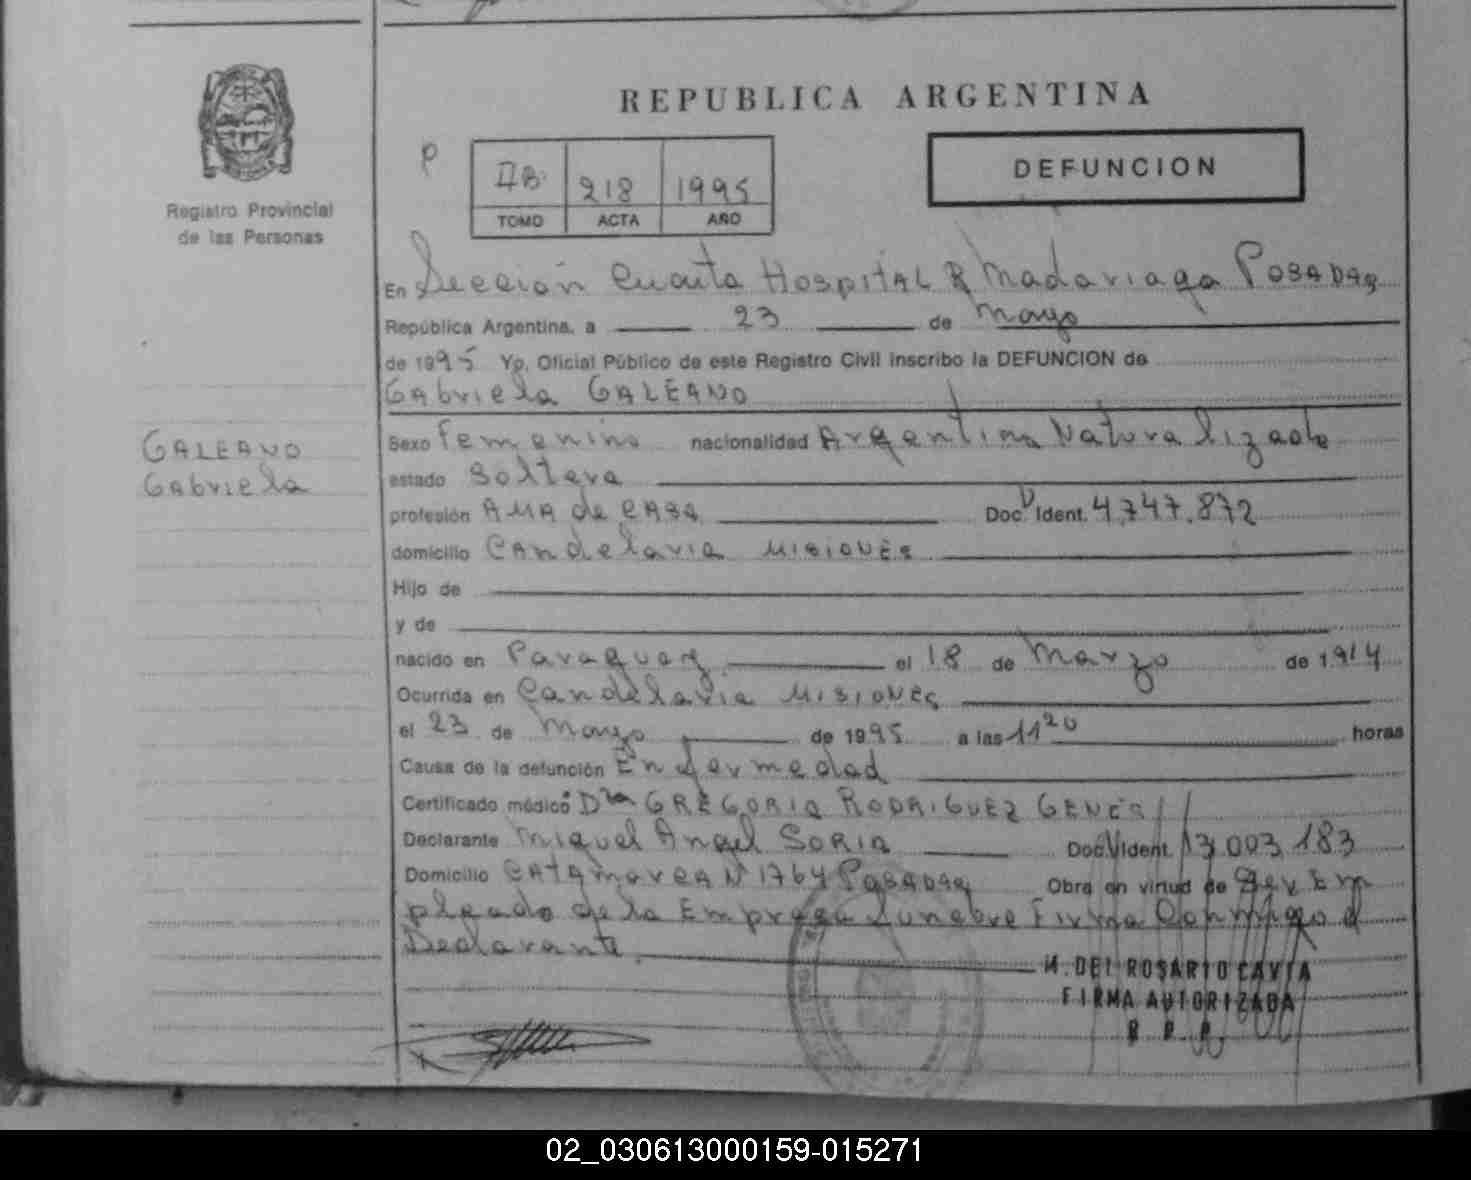 REPUBLICA ARGENTINA
DEFUNCION
P
218 1995
TOMO ACTA AÑO
Registro Provincial
de las Personas
En Sección Cuarta Hospital R Madariaga Posadas
República Argentina, a 23 de Mayo
de 1995 Yo, Oficial Público de este Registro Civil inscribo la DEFUNCION de
Gabriela GALEANO
GALEANO
Gabriela
Sexo Femenino nacionalidad Argentina Naturalizada
estado Soltera
profesión AMA de CASA Doc. Ident. 4.747.872
domicilio Candelaria MISIONES
Hijo de
y de
nacido en Paraguay el 18 de Marzo de 1914
Ocurrida en Candelaria MISIONES
el 23 de Mayo de 1995 a las 11 20 horas
Causa de la defunción Enfermedad
Certificado médico Dra GREGORIA RODRIGUEZ GENES
Declarante Miguel Angel SORIA Doc. Ident. 13.003.183
Domicilio CATAMARCA Nº 1764 Posadas Obra en virtud de Ser Em
pleado de la Empresa Funebre Firma Conmigo el
Declarante.
M. DEL ROSARIO CAVIA
FIRMA AUTORIZADA
R. P. P.
02_030613000159-015271